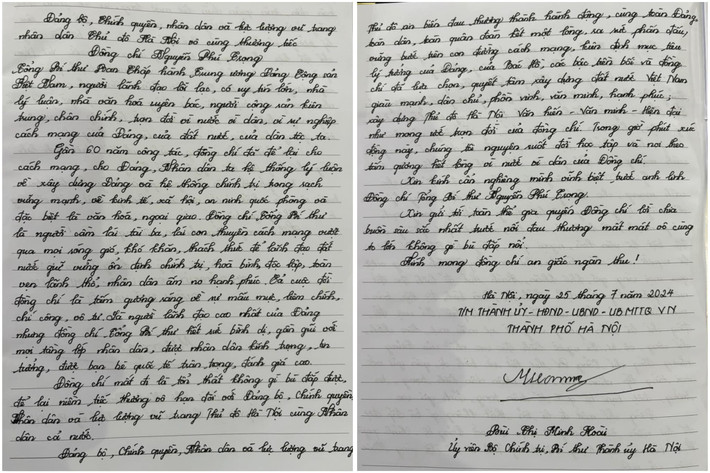 Đảng bộ, Chính quyền, nhân dân và lực lượng vũ trang
nhân dân Thủ đô Hà Nội vô cùng thương tiếc
Đồng chí Nguyễn Phú Trọng
Tổng Bí thư Ban Chấp hành Trung ương Đảng Cộng sản
Việt Nam, người lãnh đạo lỗi lạc, có uy tín lớn, nhà
lý luận, nhà văn hoá uyên bác, người cộng sản kiên
trung, chân chính, trọn đời vì nước vì dân, vì sự nghiệp
cách mạng của Đảng, của đất nước, của dân tộc ta.
Gần 60 năm công tác, đồng chí đã để lại cho
cách mạng, cho Đảng, Nhân dân ta hệ thống lý luận
về xây dựng Đảng và hệ thống chính trị trong sạch
vững mạnh, về kinh tế, xã hội, an ninh quốc phòng và
đặc biệt là văn hoá, ngoại giao. Đồng chí Tổng Bí thư
là người cầm lái tài ba, lái con thuyền cách mạng vượt
qua mọi sóng gió, khó khăn, thách thức để lãnh đạo đất
nước giữ vững ổn định chính trị, hoà bình, độc lập, toàn
vẹn lãnh thổ, nhân dân ấm no hạnh phúc. Cả cuộc đời
đồng chí là tấm gương sáng về sự mẫu mực, liêm chính,
chí công, vô tư. Là người lãnh đạo cao nhất của Đảng
nhưng đồng chí Tổng Bí thư hết sức bình dị, gần gũi với
mọi tầng lớp nhân dân, được nhân dân kính trọng, tin
tưởng, được bạn bè quốc tế trân trọng, đánh giá cao.
Đồng chí mất đi là tổn thất không gì bù đắp được,
để lại niềm tiếc thương vô hạn đối với Đảng bộ, Chính quyền,
Nhân dân và lực lượng vũ trang Thủ đô Hà Nội cùng Nhân
dân cả nước.
Đảng bộ, Chính quyền, Nhân dân và lực lượng vũ trang
Thủ đô xin biến đau thương thành hành động, cùng toàn Đảng,
toàn dân, toàn quân đoàn kết một lòng, ra sức phấn đấu,
vững bước trên con đường cách mạng, kiên định mục tiêu
lý tưởng của Đảng, của Bác Hồ, các bậc tiền bối và đồng
chí đã lựa chọn, quyết tâm xây dựng đất nước Việt Nam
giàu mạnh, dân chủ, phồn vinh, văn minh, hạnh phúc;
xây dựng Thủ đô Hà Nội Văn hiến - Văn minh - Hiện đại
như mong ước trọn đời của đồng chí. Trong giờ phút xúc
động này chúng tôi nguyện suốt đời học tập và noi theo
tấm gương hết lòng vì nước vì dân của Đồng chí.
Xin kính cẩn nghiêng mình vĩnh biệt trước anh linh
Đồng chí Tổng Bí thư Nguyễn Phú Trọng.
Xin gửi tới toàn thể gia quyến Đồng chí lời chia
buồn sâu sắc nhất trước nỗi đau thương mất mát vô cùng
to lớn không gì bù đắp nổi.
Kính mong đồng chí an giấc ngàn thu!
Hà Nội, ngày 25 tháng 7 năm 2024
T/M THÀNH ỦY - HĐND - UBND - UB MTTQ VN
THÀNH PHỐ HÀ NỘI
Bùi Thị Minh Hoài
Ủy viên Bộ Chính trị, Bí thư Thành ủy Hà Nội